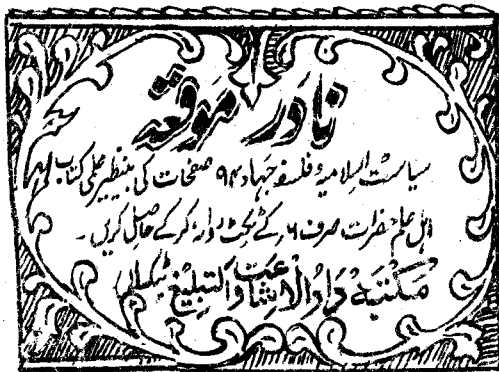 نادر موقعہ
سیاست اسلامیہ و فلسفہ جہاد ۹۴ صفحات کی بینظیر علمی کتاب
اہل علم حضرات صرف ۶؍ کے ٹکٹ روانہ کر کے حاصل کریں۔
مکتبہ دار الاشاعت والتبلیغ